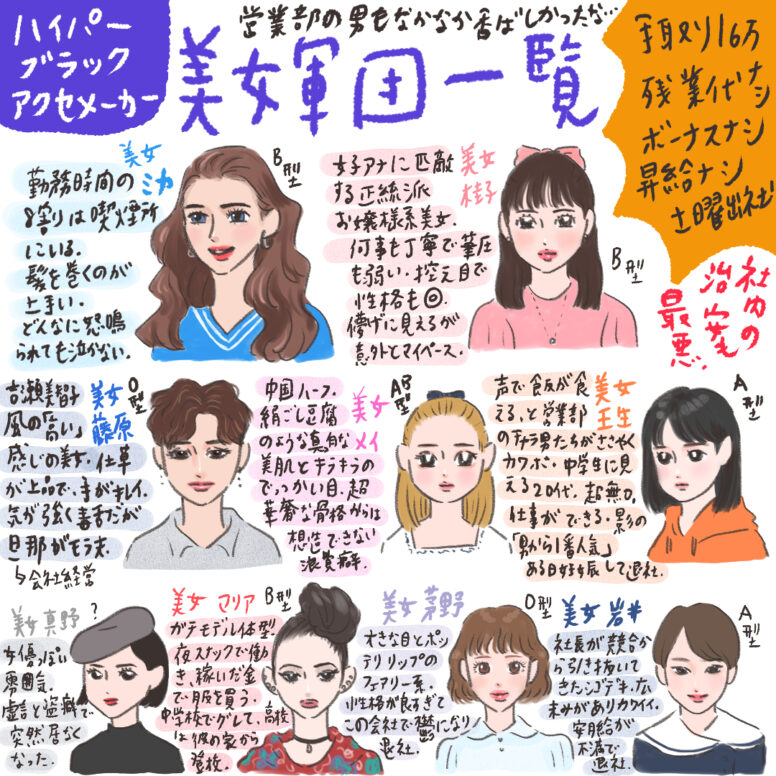 営業部の男もなかなか香ばしかったな…
ハイパー
ブラック
アクセメーカー
美女軍団一覧
手取り16万
残業代ナシ
ボーナスナシ
昇給ナシ
土曜出社
社内の
治安も
最悪
美女
ミカ
B型
勤務時間の
8割は喫煙所
にいる。
髪を巻くのが
上手い。
どんなに怒鳴
られても泣かない。
美女
桂子
B型
女子アナに匹敵
する正統派
お嬢様系美女.
何事も丁寧で筆圧
も弱い.控え目で
性格も◎.
儚げに見えるが
意外とマイペース.
美女
藤原
O型
吉瀬美智子
風の「高い」
感じの美女.仕草
が上品で、手がキレイ.
気が強く毒舌だが
旦那がモラオ.
↳会社経営
美女
メイ
AB型
中国ハーフ.
絹ごし豆腐
のような真白な
美肌とキラキラの
でっかい目.超
華奢な骨格からは
想像できない
浪費癖.
美女
壬生
A型
声で飯が食
える、と営業部
のチャラ男たちがささやく
カワボ.中学生に見
える20代.超無口.
仕事ができる.影の
「男から1番人気」
ある日妊娠して退社.
美女 真野
?
女優っぽい
雰囲気.
虚言と盗癖で
突然居なく
なった.
美女 マリア
B型
ガチモデル体型.
夜スナックで働
き、稼いだ金
で服を買う.
中学校でグレて、高校
は彼の家から
登校.
美女 茅野
O型
大きな目とポッ
テリリップの
フェアリー系.
性格が良すぎて
この会社で鬱になり
退社.
美女 岩井
A型
社長が競合か
ら引き抜いて
きたシゴデキ.広
末みがありカワイイ.
安月給が
不満で
退社.